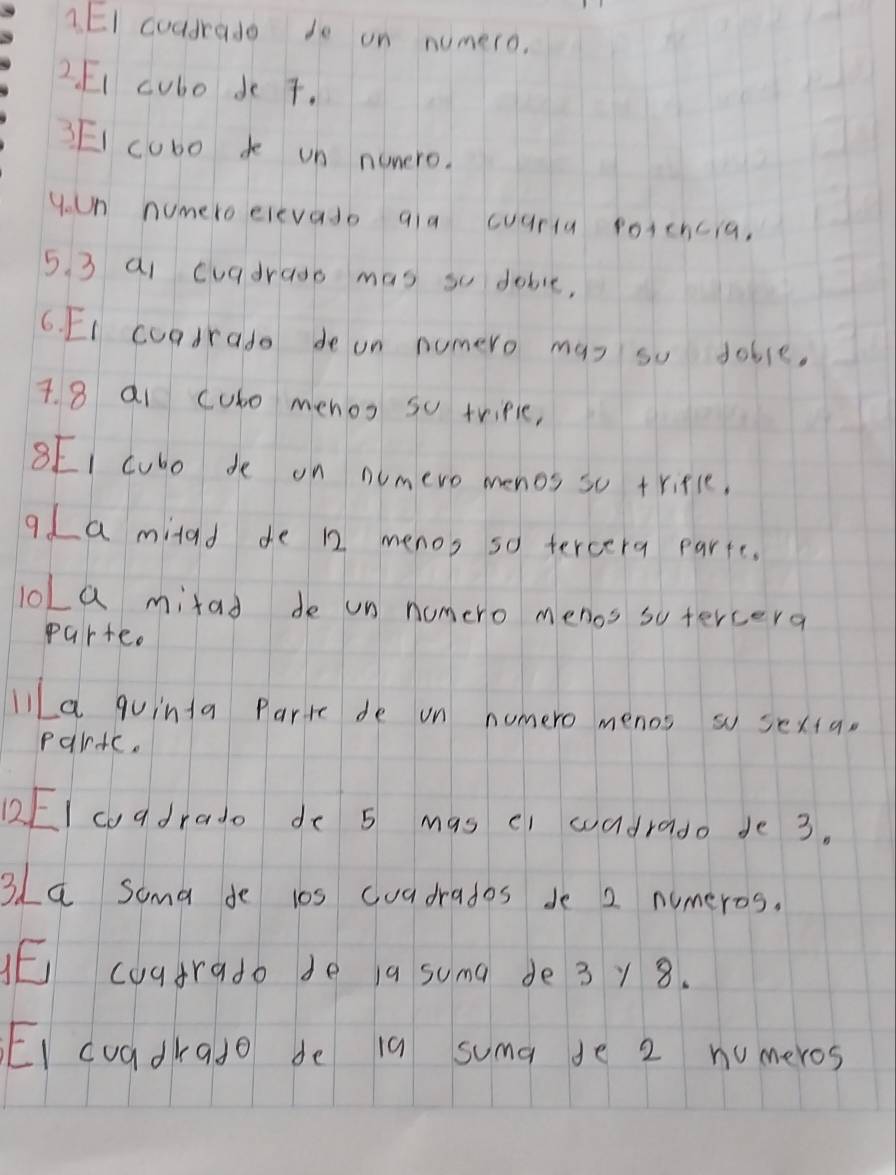 1.El cuadrado de un numero.
2.El cubo de 7.
3El cubo de un numero.
4.Un numero elevado ala cuarta potencia.
5.3 al cuadrado mas su doble.
6.El cuadrado de un numero mas su doble.
7.8 al cubo menos su triple.
8El cubo de un numero menos su triple.
9La mitad de 12 menos su tercera parte.
10La mitad de un numero menos su tercera
parte.
11La quinta Parte de un numero menos su sexta.
parte.
12El cuadrado de 5 mas el cuadrado de 3.
3La suma de los cuadrados de 2 numeros.
El cuadrado de la suma de 3 y 8.
El cuadrado de la suma de 2 numeros